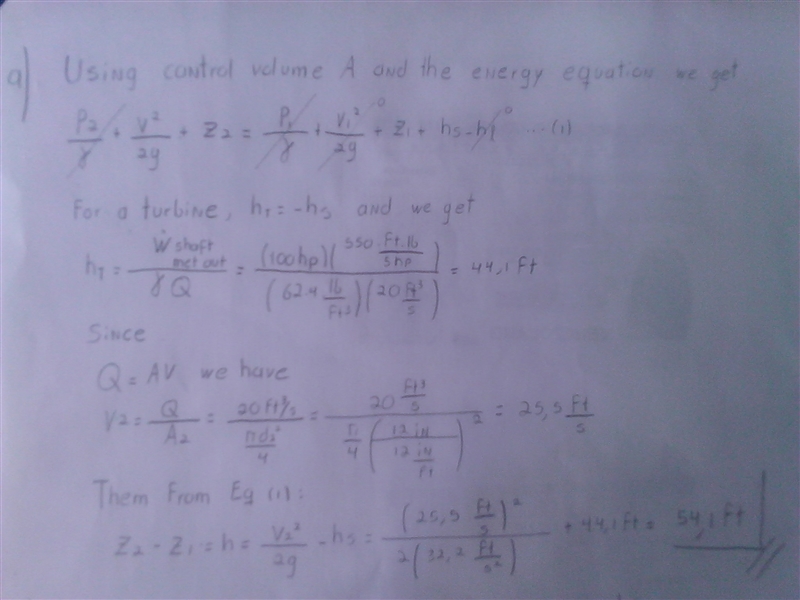 a) Using control volume A and the energy equation we get
P2/γ + V²/2g + Z2 = P1/γ + V1²/2g 0 + Z1 + hs - hl 0 ... (1)
For a turbine, hT = -hs and we get
hT = Ẇ shaft net out / γ Q = (100hp)(550 Ft.lb/s hp) / (62.4 lb/Ft3)(20 Ft³/s) = 44,1 Ft
Since
Q = AV we have
V2 = Q/A2 = 20 Ft³/s / (πd2²/4) = 20 Ft³/s / (π/4 (12 iN / 12 iN/Ft)²) = 25,5 Ft/s
Them From Eq (1):
Z2 - Z1 = h = V2²/2g - hs = (25,5 Ft/s)² / 2(32,2 Ft/s²) + 44,1 Ft = 54,1 Ft